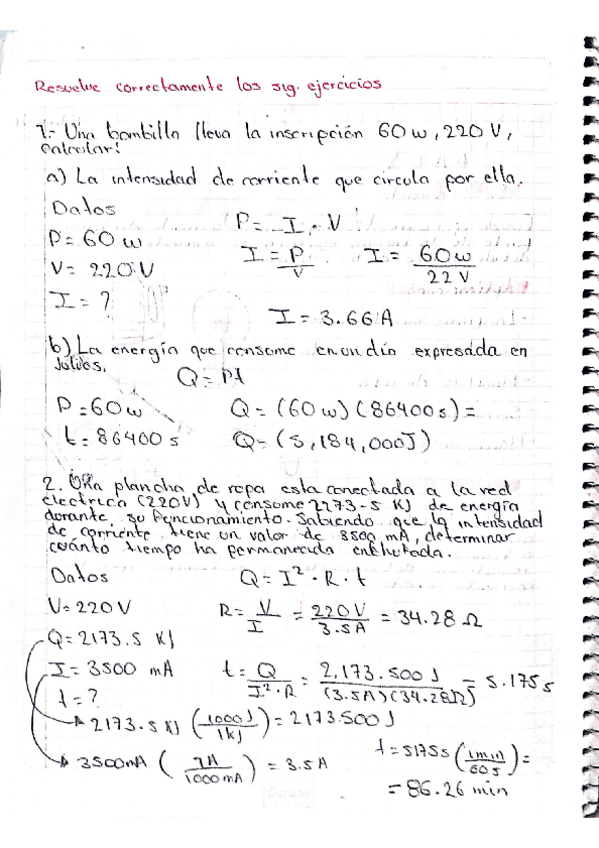 Resuelve correctamente los sig. ejercicios
1.- Una bombilla lleva la inscripción 60 w, 220 V,
calcular:
a) La intensidad de corriente que circula por ella.
Datos
P = I · V
P = 60 w
I = P/V
I = 60 w / 22 V
V = 220 V
I = ?
I = 3.66 A
b) La energía que consome en un día expresada en
Julios.
Q = Pt
P = 60 w
Q = (60 w) (86400 s) =
t = 86400 s
Q = (5,184,000 J)
2. Una plancha de ropa esta conectada a la red
electrica (220 V) y consome 2173.5 KJ de energía
durante su funcionamiento. Sabiendo que la intensidad
de corriente tiene un valor de 3500 mA, determinar
cuánto tiempo ha permanecida enchufada.
Datos
Q = I² · R · t
V = 220 V
R = V/I = 220 V / 3.5 A = 34.28 Ω
Q = 2173.5 KJ
I = 3500 mA
t = Q / I² · R = 2,173.500 J / (3.5 A) (34.28 Ω) = 5.175 s
t = ?
2173.5 KJ (1000 J / 1 KJ) = 2173.500 J
3500 mA (1 A / 1000 mA) = 3.5 A
t = 5175 s (1 min / 60 s) =
= 86.26 min